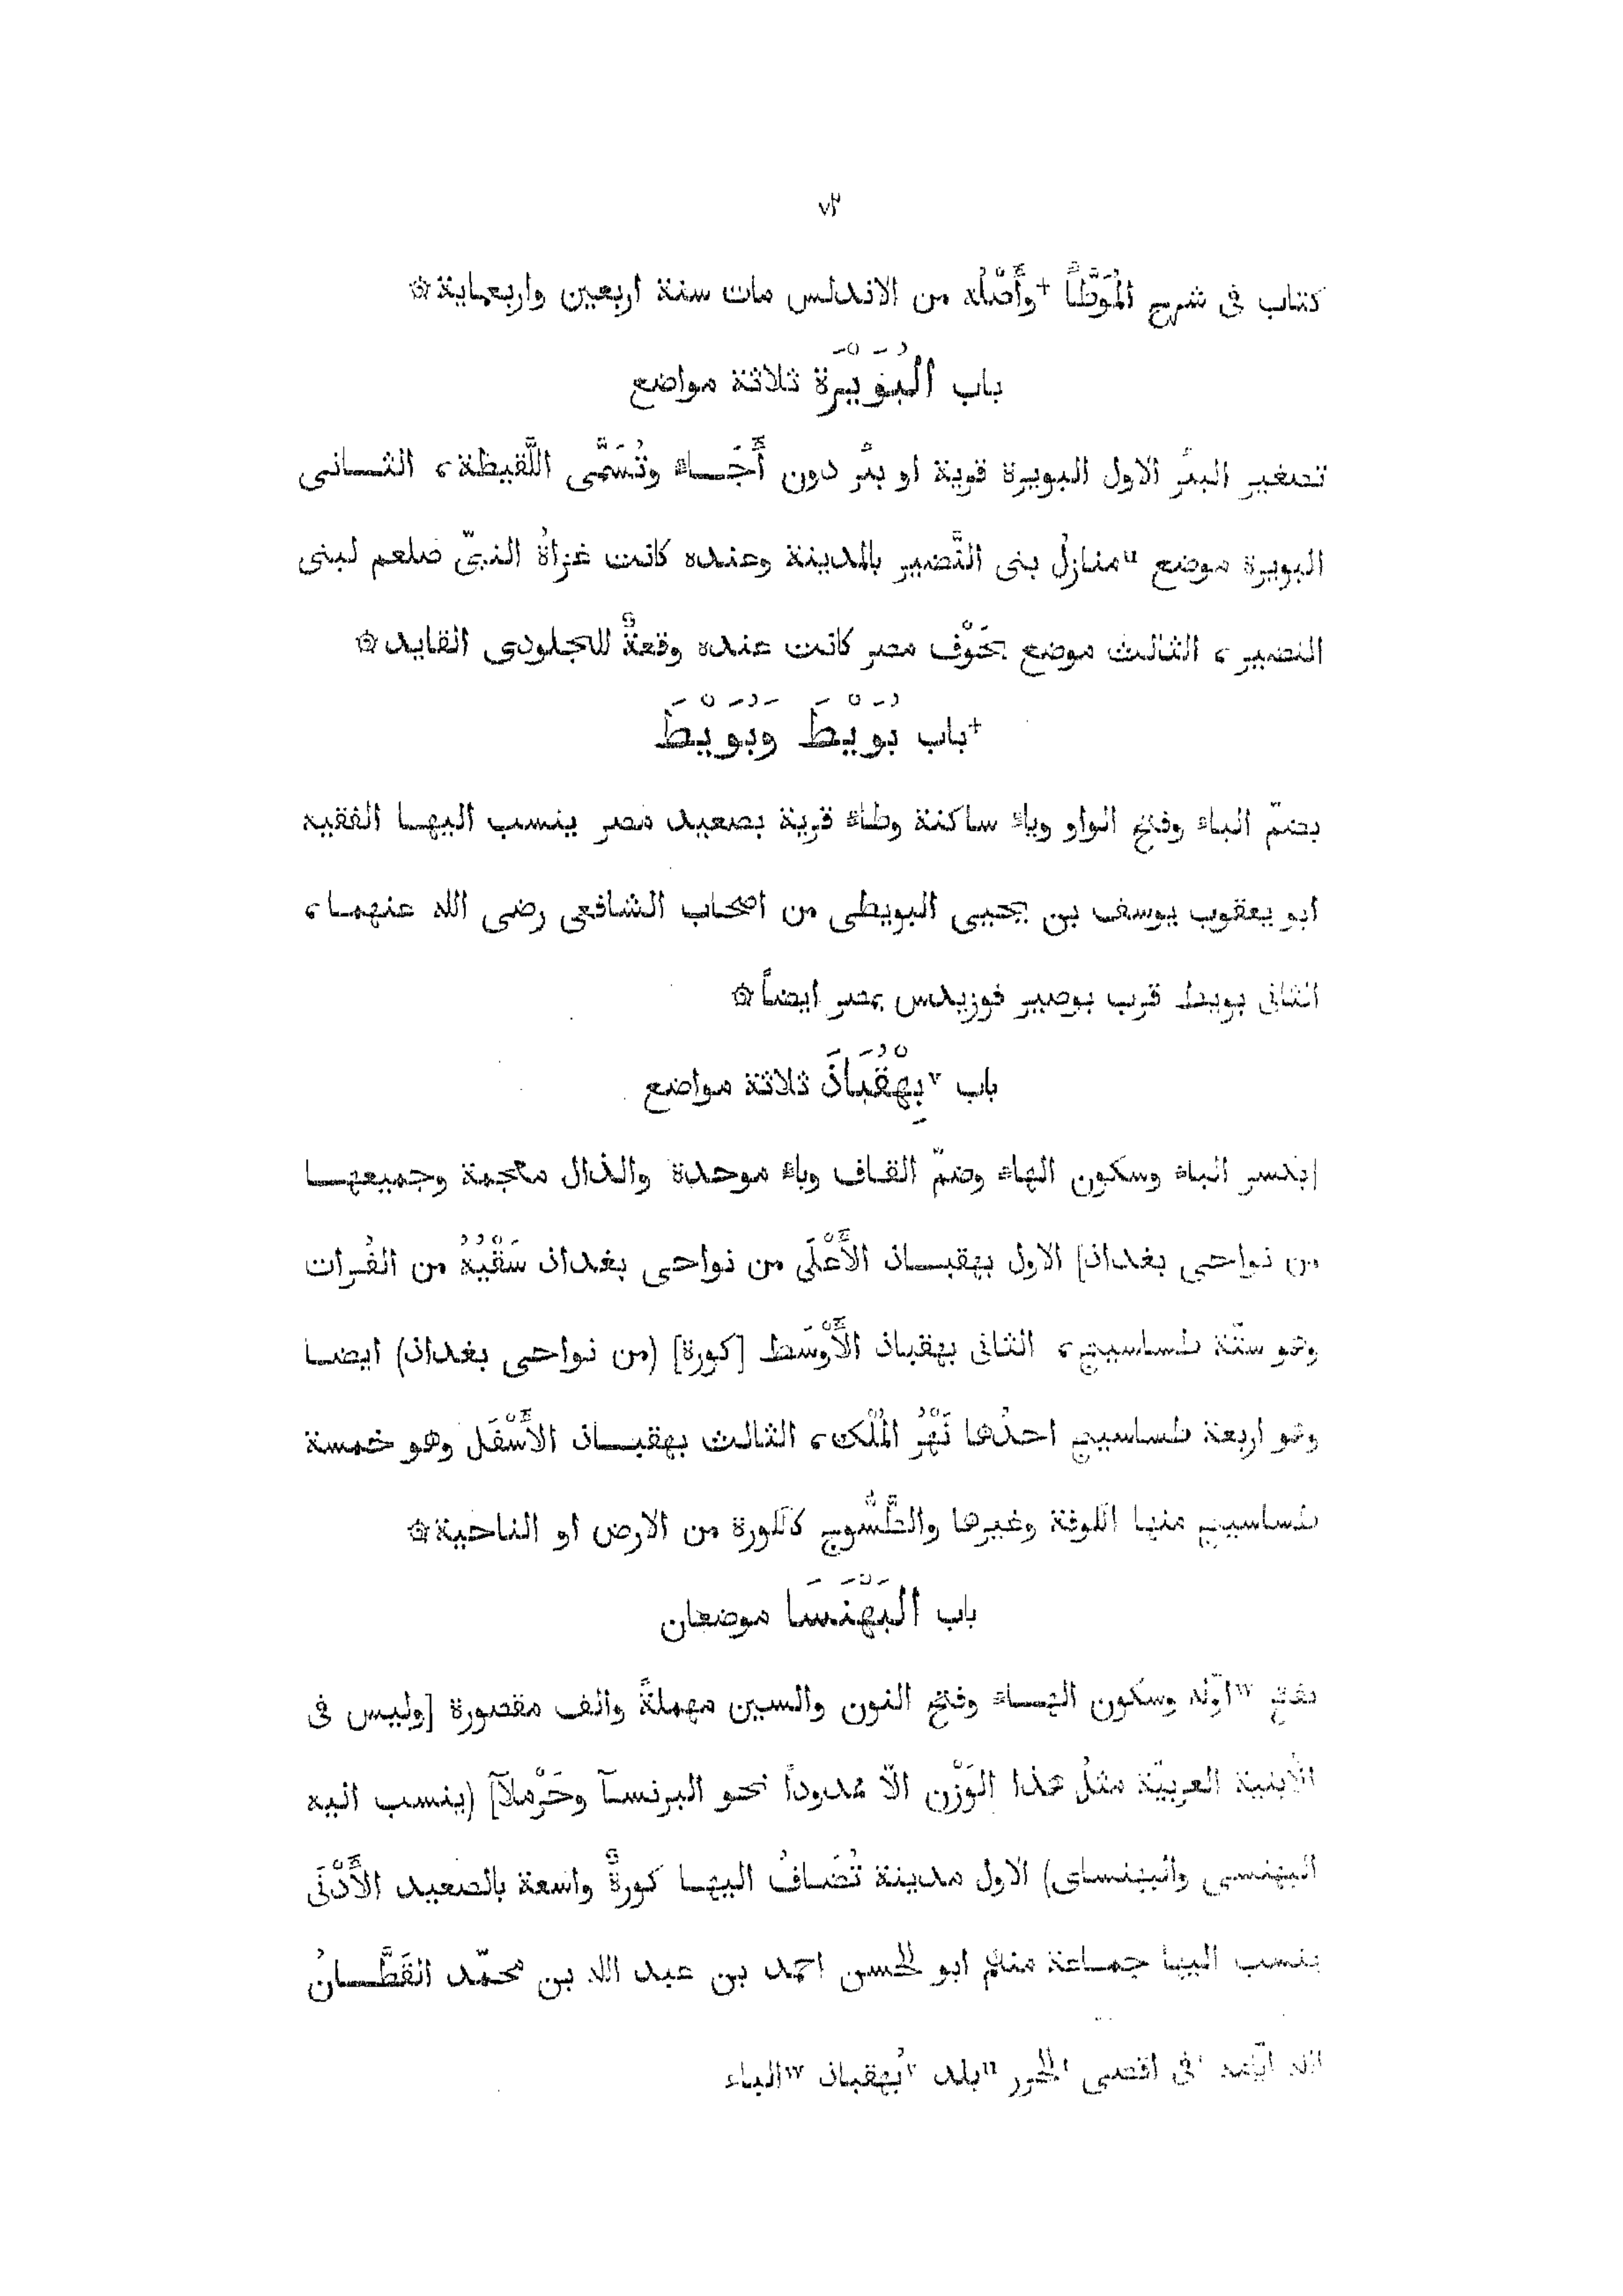 ٧٣
كتاب فى شرح المُوَطَّأ +وأَصْلُه من الاندلس مات سنة اربعين واربعماية۞
باب الْبُوَيْرَة ثلاثة مواضع
تصغير البئر الاول البويرة قرية او بئر دون أَجَـاء وتُسَمَّى اللَّقيطة، الثـانى
البويرة موضع uمنازل بنى النَّضير بالمدينة وعنده كانت غزاةُ النبىّ صلعم لبنى
النصير، الثالث موضع بحَوْف مصر كانت عنده وقعةٌ للجلودى القايد۞
+باب بُوَيْطَ وَبُوَيْطَ
بضمّ الباء وفتح الواو وياء ساكنة وطاء قرية بصعيد مصر ينسب اليهـا الفقيه
ابو يعقوب يوسف بن يحيى البويطى من اصحاب الشافعى رضى الله عنهمـا،
الثانى بويط قرب بوصير قوريدس بمصر ايضاً۞
باب vبِهْقُبَاذَ ثلاثة مواضع
[بكسر الباء وسكون الهاء وضمّ القاف وباء موحدة والذال معجمة وجميعهـا
من نواحى بغداذ] الاول بهقبـاذ الأَعْلَى من نواحى بغداذ سَقْيُهُ من الفُرات
وهو ستّة طساسيج، الثانى بهقباذ الأَوْسَط [كورة] (من نواحى بغداذ) ايضـا
وهو اربعة طساسيج احدُها نَهْرُ المُلْك، الثالث بهقبـاذ الأَسْفَل وهو خمسة
طساسيج منها الكوفة وغيرها والطَّسُّوج كالكورة من الارض او الناحية۞
باب الْبَهْنَسَا موضعان
بفتح wاوّله وسكون الهـاء وفتح النون والسين مهملةً والف مقصورة [وليس فى
الأبنية العربيّة مثلُ هذا الوَزْن الّا ممدوداً نحو البرنسآ وحَرْملآ] (ينسب اليه
البهنسى والبهنساى) الاول مدينة تُضَافُ اليهـا كورةٌ واسعة بالصعيد الأَدْنَى
ينسب اليها جمـاعة منهم ابو الحسن احمد بن عبد الله بن محمّد القَطَّـانُ
فى اقصى uبلد vبُهقباذ wالباء